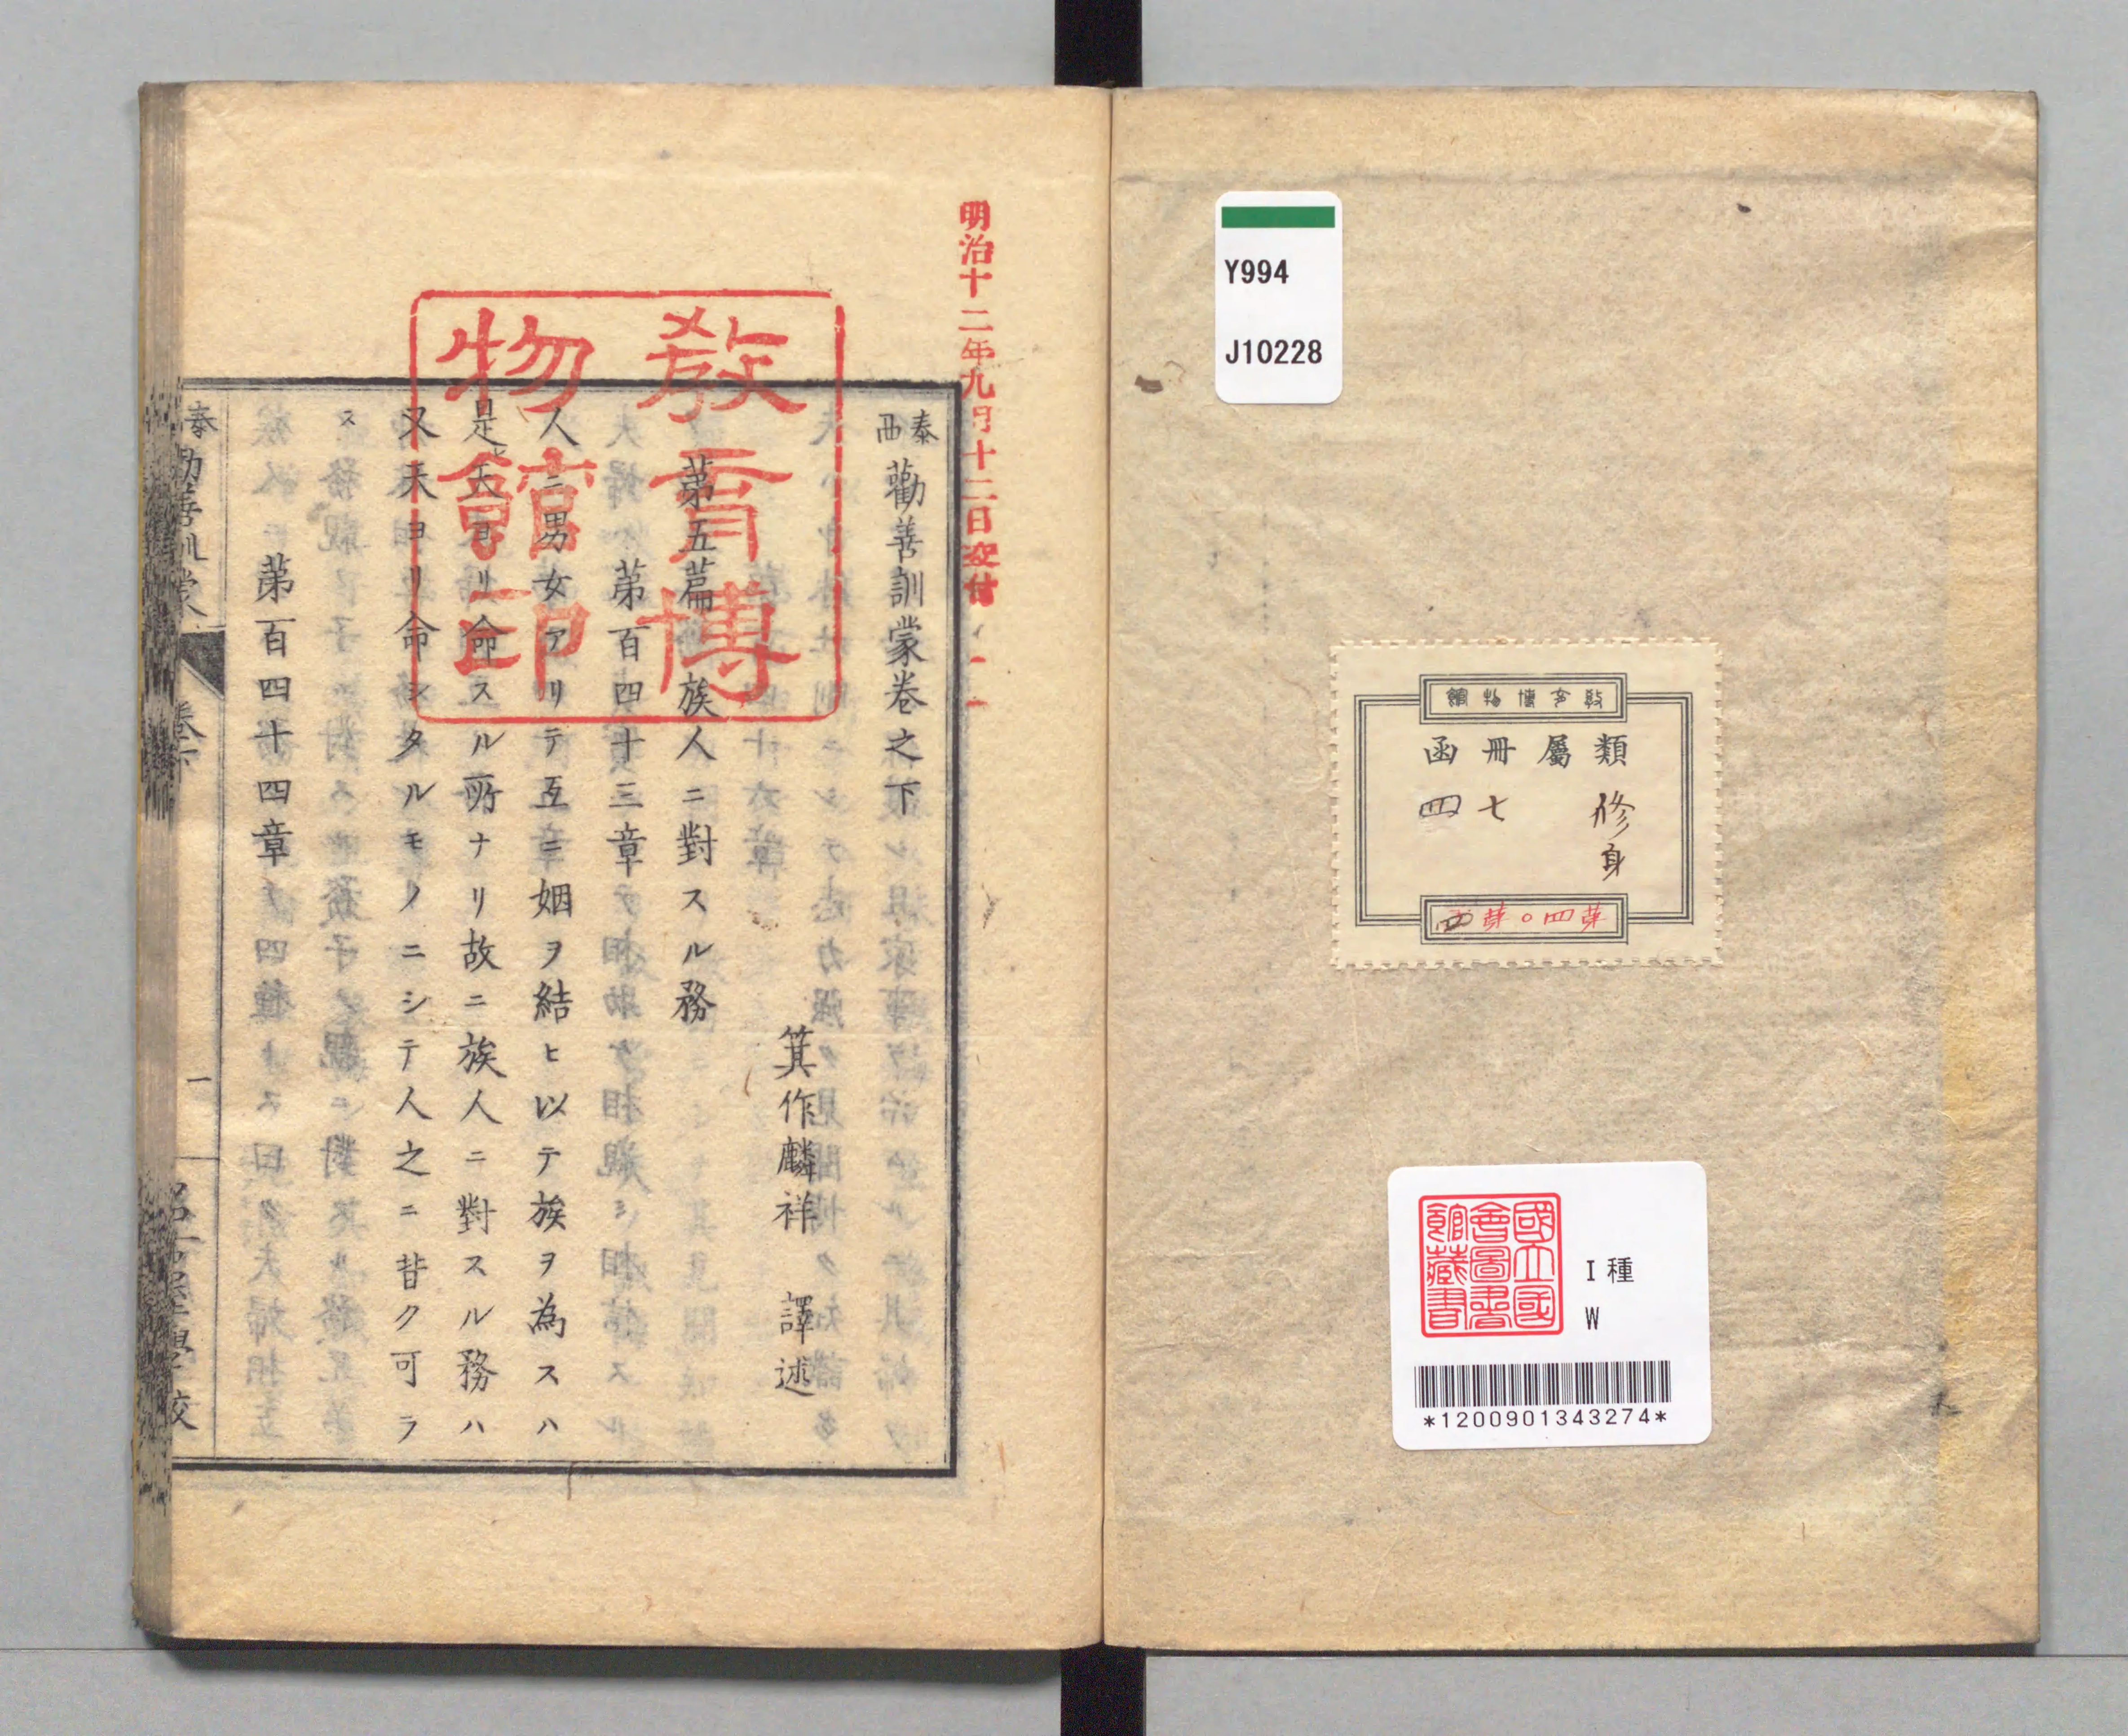 Y994
J10228
館物博育教
類 屬 冊 函
修身 七 四
第四〇第四
國立國會圖書館藏書
I種
W
*1200901343274*
明治十二年九月十二日交付
教育博物館印
泰西 勸善訓蒙卷之下
箕作麟祥 譯述
第五篇 族人ニ對スル務
第百四十三章
人ニ男女アリテ互ニ姻ヲ結ヒ以テ族ヲ為スハ
是天ヨリ命スル所ナリ故ニ族人ニ對スル務ハ
又天ヨリ命シタルモノニシテ人之ニ背ク可ラ
ス
第百四十四章
泰 勸善訓蒙 卷下 一